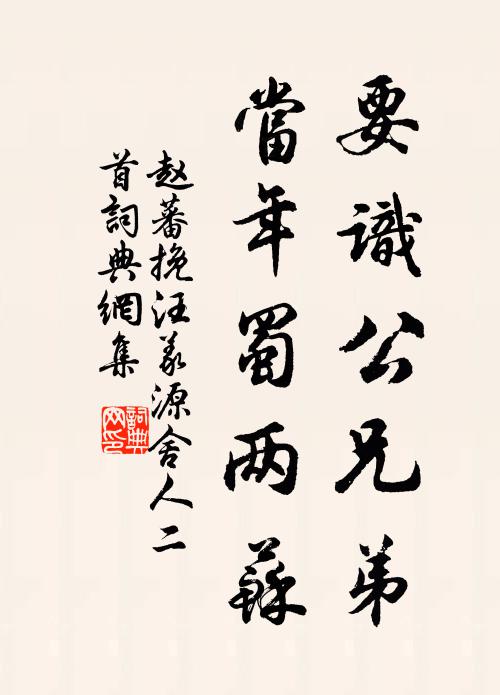 要識公兄弟
當年蜀两蘇
赵蕃挽汪義源舍人二
首詞典網集
詞典
网印